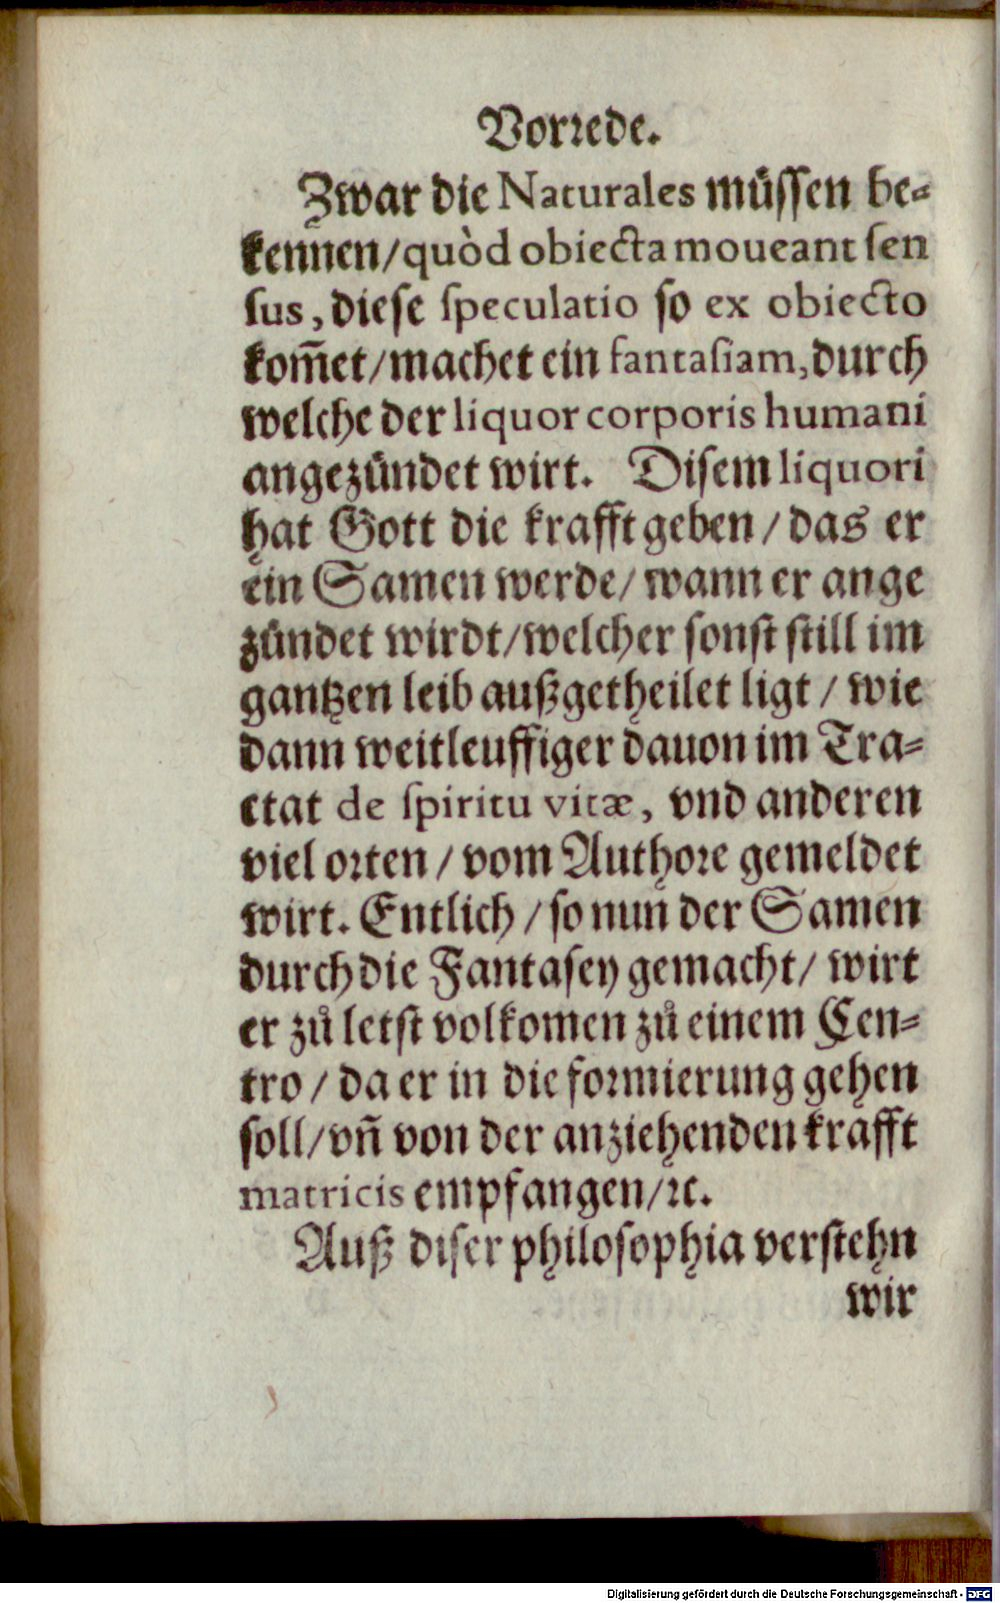 Vorrede.
Zwar die Naturales müssen be-
kennen/quòd obiecta moueant sen
sus, diese speculatio so ex obiecto
kom̃et/machet ein fantasiam, durch
welche der liquor corporis humani
angezündet wirt. Disem liquori
hat Gott die krafft geben/das er
ein Samen werde/wann er ange
zündet wirdt/welcher sonst still im
gantzen leib außgetheilet ligt/wie
dann weitleuffiger dauon im Tra-
ctat de spiritu vitæ, vnd anderen
viel orten/vom Authore gemeldet
wirt. Entlich/so nun der Samen
durch die Fantasey gemacht/wirt
er zů letst volkomen zů einem Cen-
tro/da er in die formierung gehen
soll/vñ von der anziehenden krafft
matricis empfangen/ꝛc.
Auß diser philosophia verstehn
wir
Digitalisierung gefördert durch die Deutsche Forschungsgemeinschaft - DFG